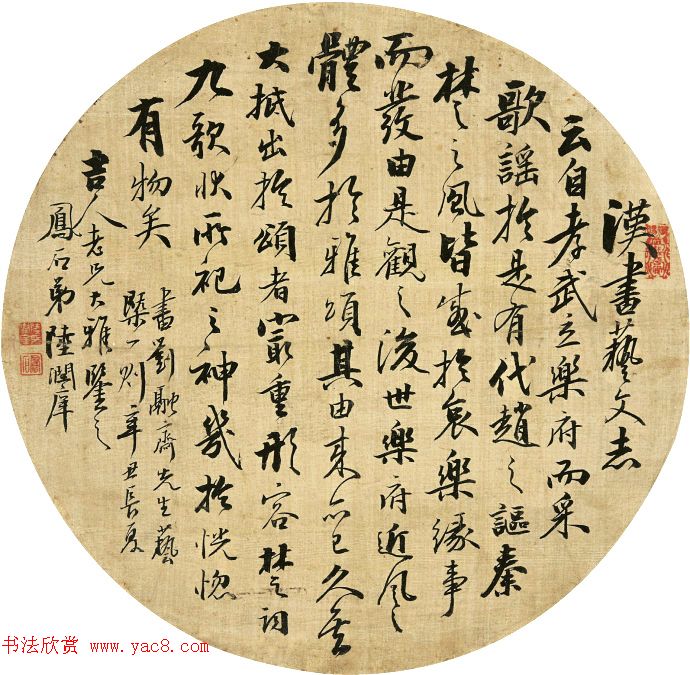 漢書藝文志
云自孝武立樂府而采
歌謠於是有代趙之謳秦
楚之風皆感於哀樂緣事
而發由是觀之後世樂府近風之
體多於雅頌其由來亦已久矣
大抵出於頌者最重形容楚詞
九歌狀所祀之神幾於恍惚
有物矣
書劉融齋先生藝
槩一則辛丑長夏
吉人老兄大雅鑒之
鳳石弟陸潤庠
书法欣赏 www.yac8.com